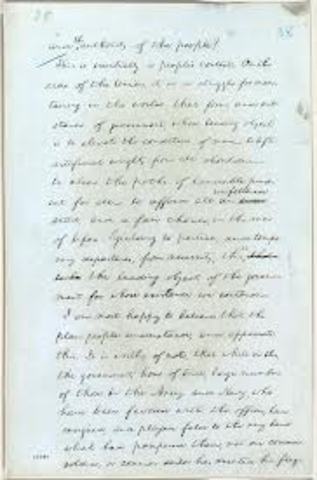 38
and authority of the people?
This is essentially a people's contest. On the
side of the Union, it is a struggle for main
taining in the world, that form, and sub
stance of government, whose leading object
is to elevate the condition of men to lift
artificial weights from all shoulders
to clear the paths of laudable pur
suit for all to afford all, an unfettered
start, and a fair chance, in the race
of life. Yielding to partial, and tempo
rary departures, from necessity, this
is the leading object of the govern
ment for whose existence we contend.
I am most happy to believe that the
plain people understand, and appreciate
this. It is worthy of note, that while in this
the government's hour of trial, large numbers
of those in the Army and Navy, who
have been favored with the offices, have
resigned, and played false to the very hand
which had pampered them, not one common
soldier, or common sailor has deserted his flag.